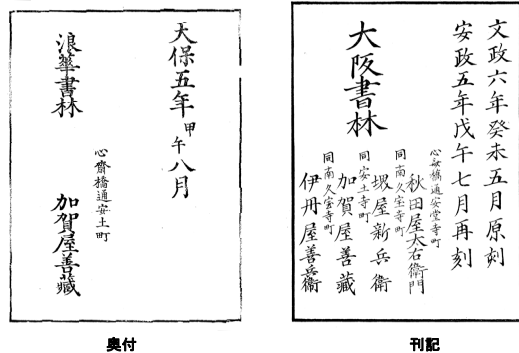 天保五年甲午八月
浪華書林
心齋橋通安土町
加賀屋善藏
奥付
文政六年癸未五月原刻
安政五年戊午七月再刻
大阪書林
心斎橋通安堂寺町
秋田屋太右衛門
同南久宝寺町
堺屋新兵衛
同安土寺町
加賀屋善藏
同南久宝寺町
伊丹屋善兵衛
刊記